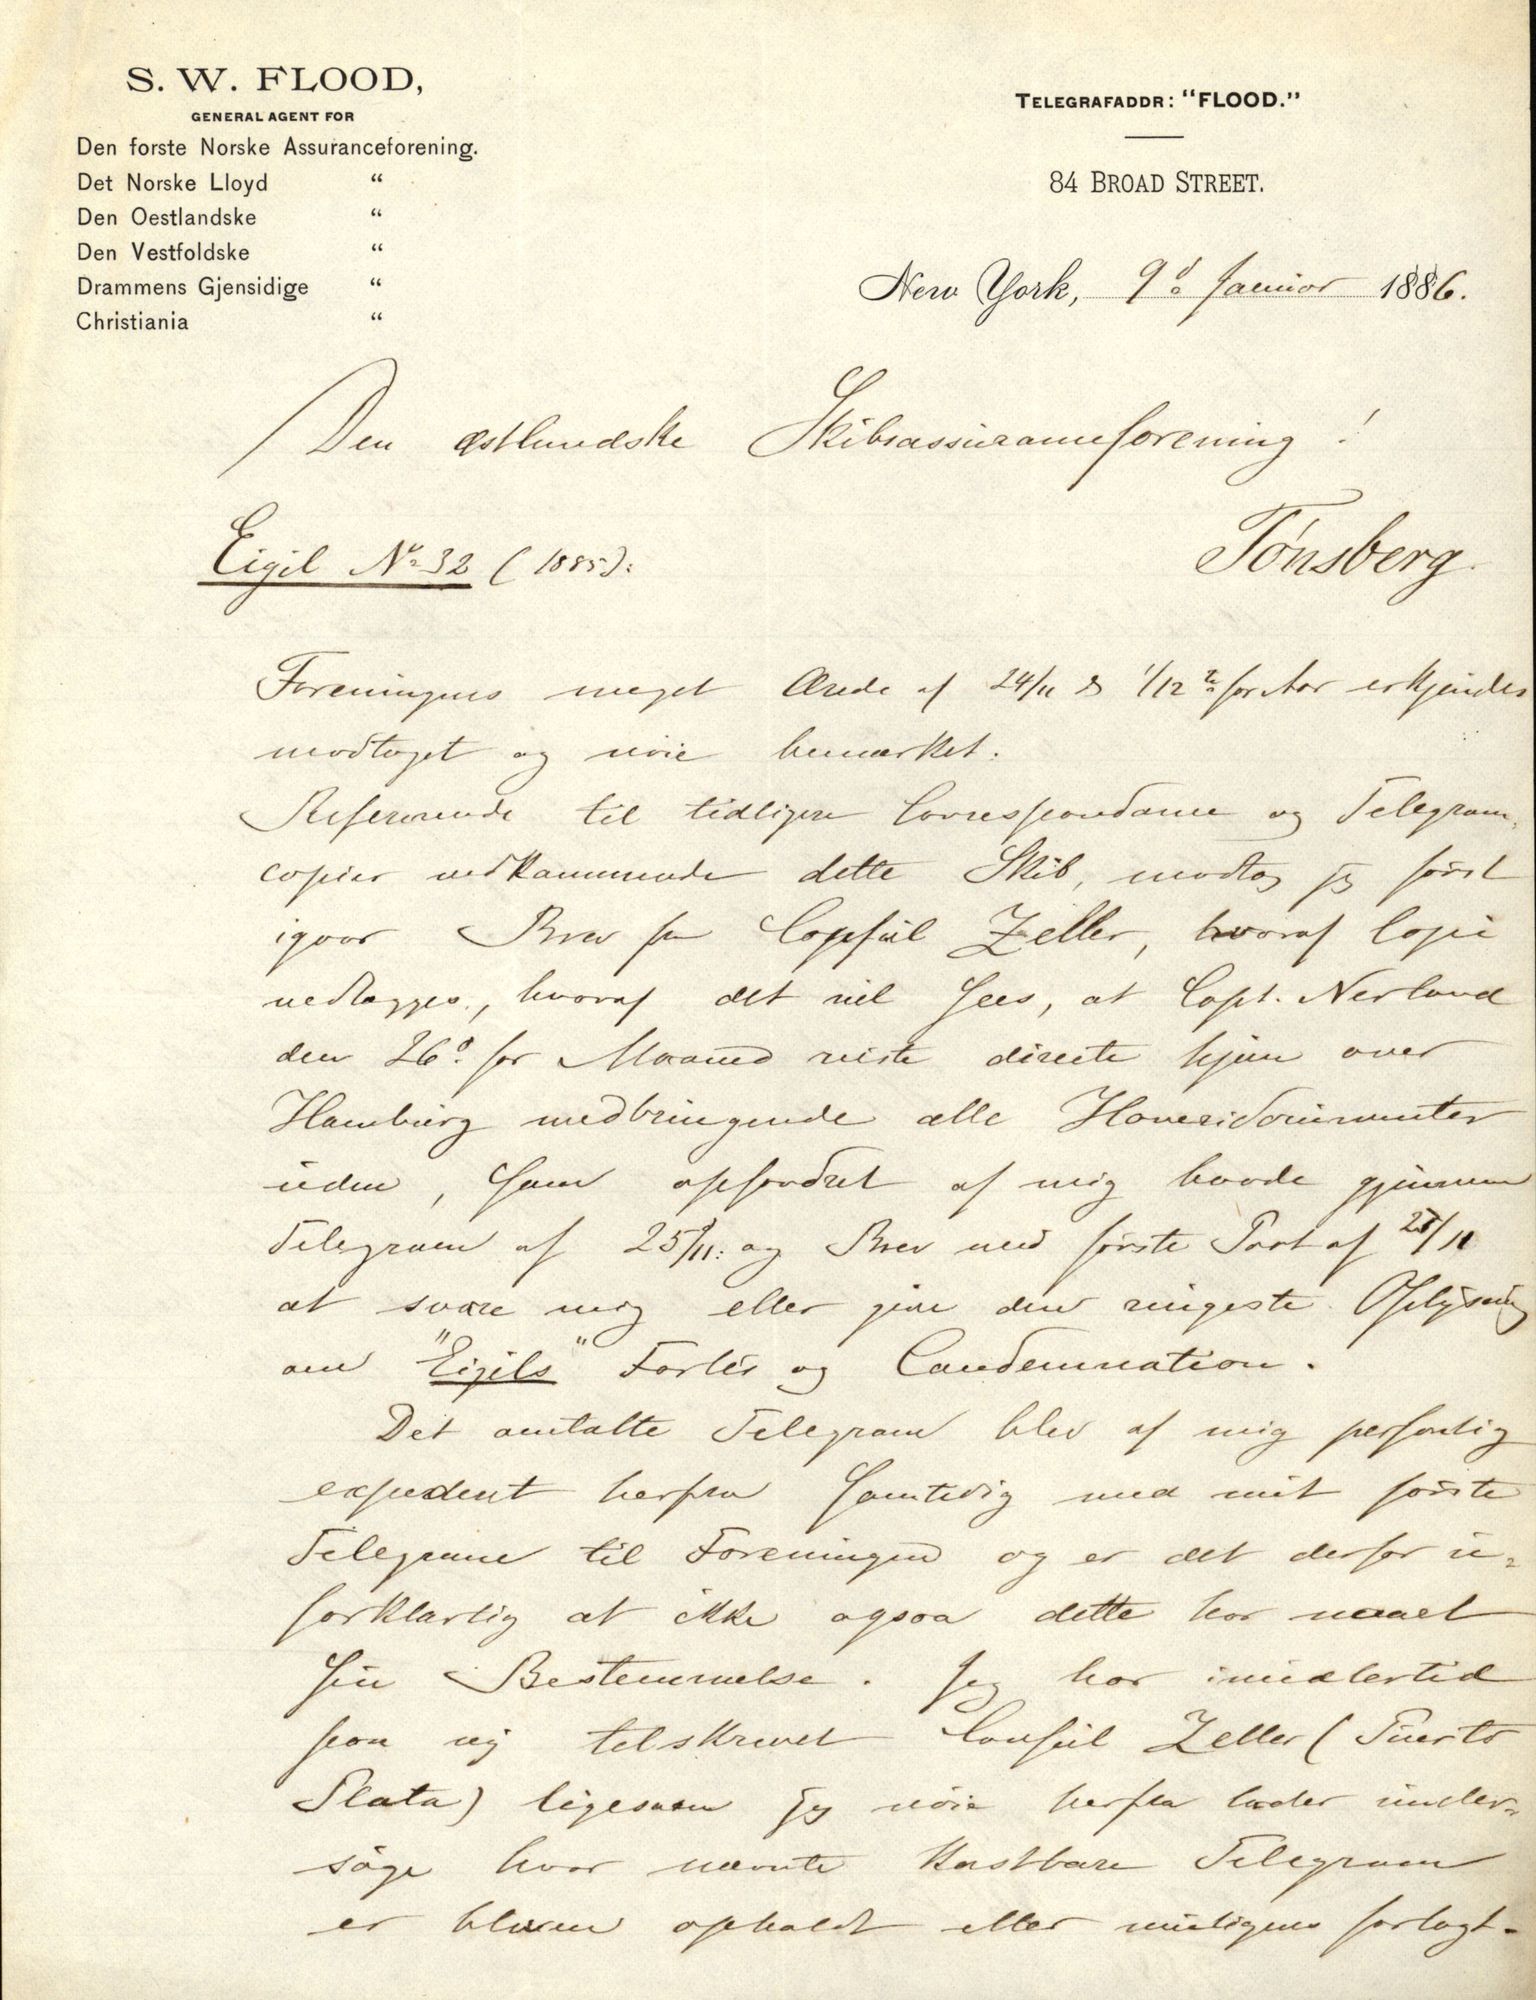 S. W. FLOOD,
GENERAL AGENT FOR
Den forste Norske Assuranceforening.
Det Norske Lloyd "
Den Oestlandske "
Den Vestfoldske "
Drammens Gjensidige "
Christiania "
TELEGRAFADDR: "FLOOD."
84 BROAD STREET.
New York, 9d Januar 1886.
Den østlandske Skibsassuranceforening!
Tønsberg.
Eigil No 32 (1885):
Foreningens meget Ærede af 24/11 & 1/12 for Aar erkjendes
modtaget og nøie bemærket.
Refererende til tidligere Correspondance og Telegram-
copier vedkommende dette Skib, modtog jeg først
igaar Brev fra Consul Zeller, hvoraf Copi
vedlægges, hvoraf det vil sees, at Capt. Nerland
den 26d for Maaned reiste directe hjem over
Hamburg medbringende alle Havaridocumenter
uden, som opfordret af mig baade gjennem
Telegram af 25/11: og Brev med første Post af 25/11
at svare mig eller give den ringeste Oplysning
om "Eigils" Forlis og Condemnation.
Det omtalte Telegram blev af mig personlig
expedert herfra samtidig med mit første
Telegram til Foreningen og er det derfor u-
forklarlig at ikke ogsaa dette har naaet
sin Bestemmelse. Jeg har imidlertid
paa ny tilskrevet Consul Zeller (Puerto
Plata) ligesom jeg nøie herfra lader under-
søge hvor nævnte kostbare Telegram
er bleven opholdt eller muligens forlagt.